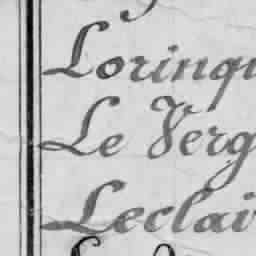 Lorinqu
Le Verg
Leclai